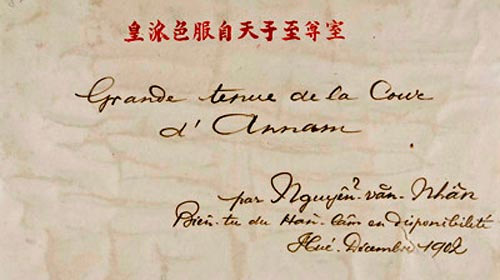 皇派色服自天子至尊室
Grande tenue de la Cour
d'Annam
par Nguyễn-văn-Nhân
Biên-tu du Hàn-lâm en disponibilité
Hué. Décembre 1902